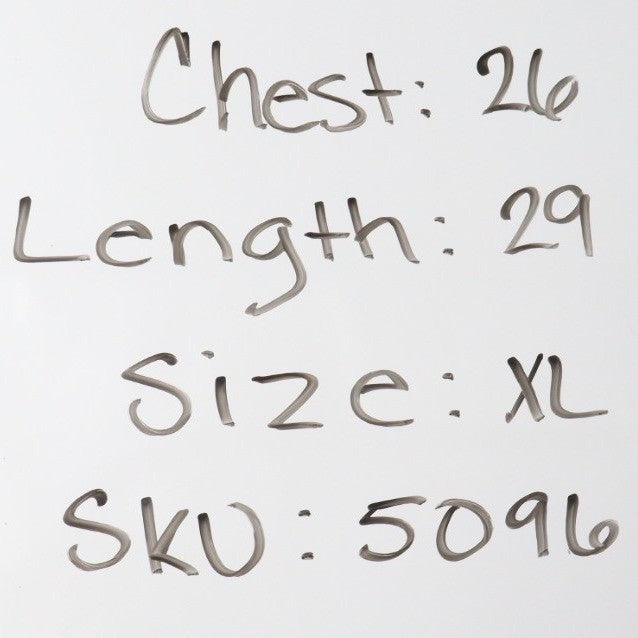 Chest: 26
Length: 29
Size: XL
SKU: 5096